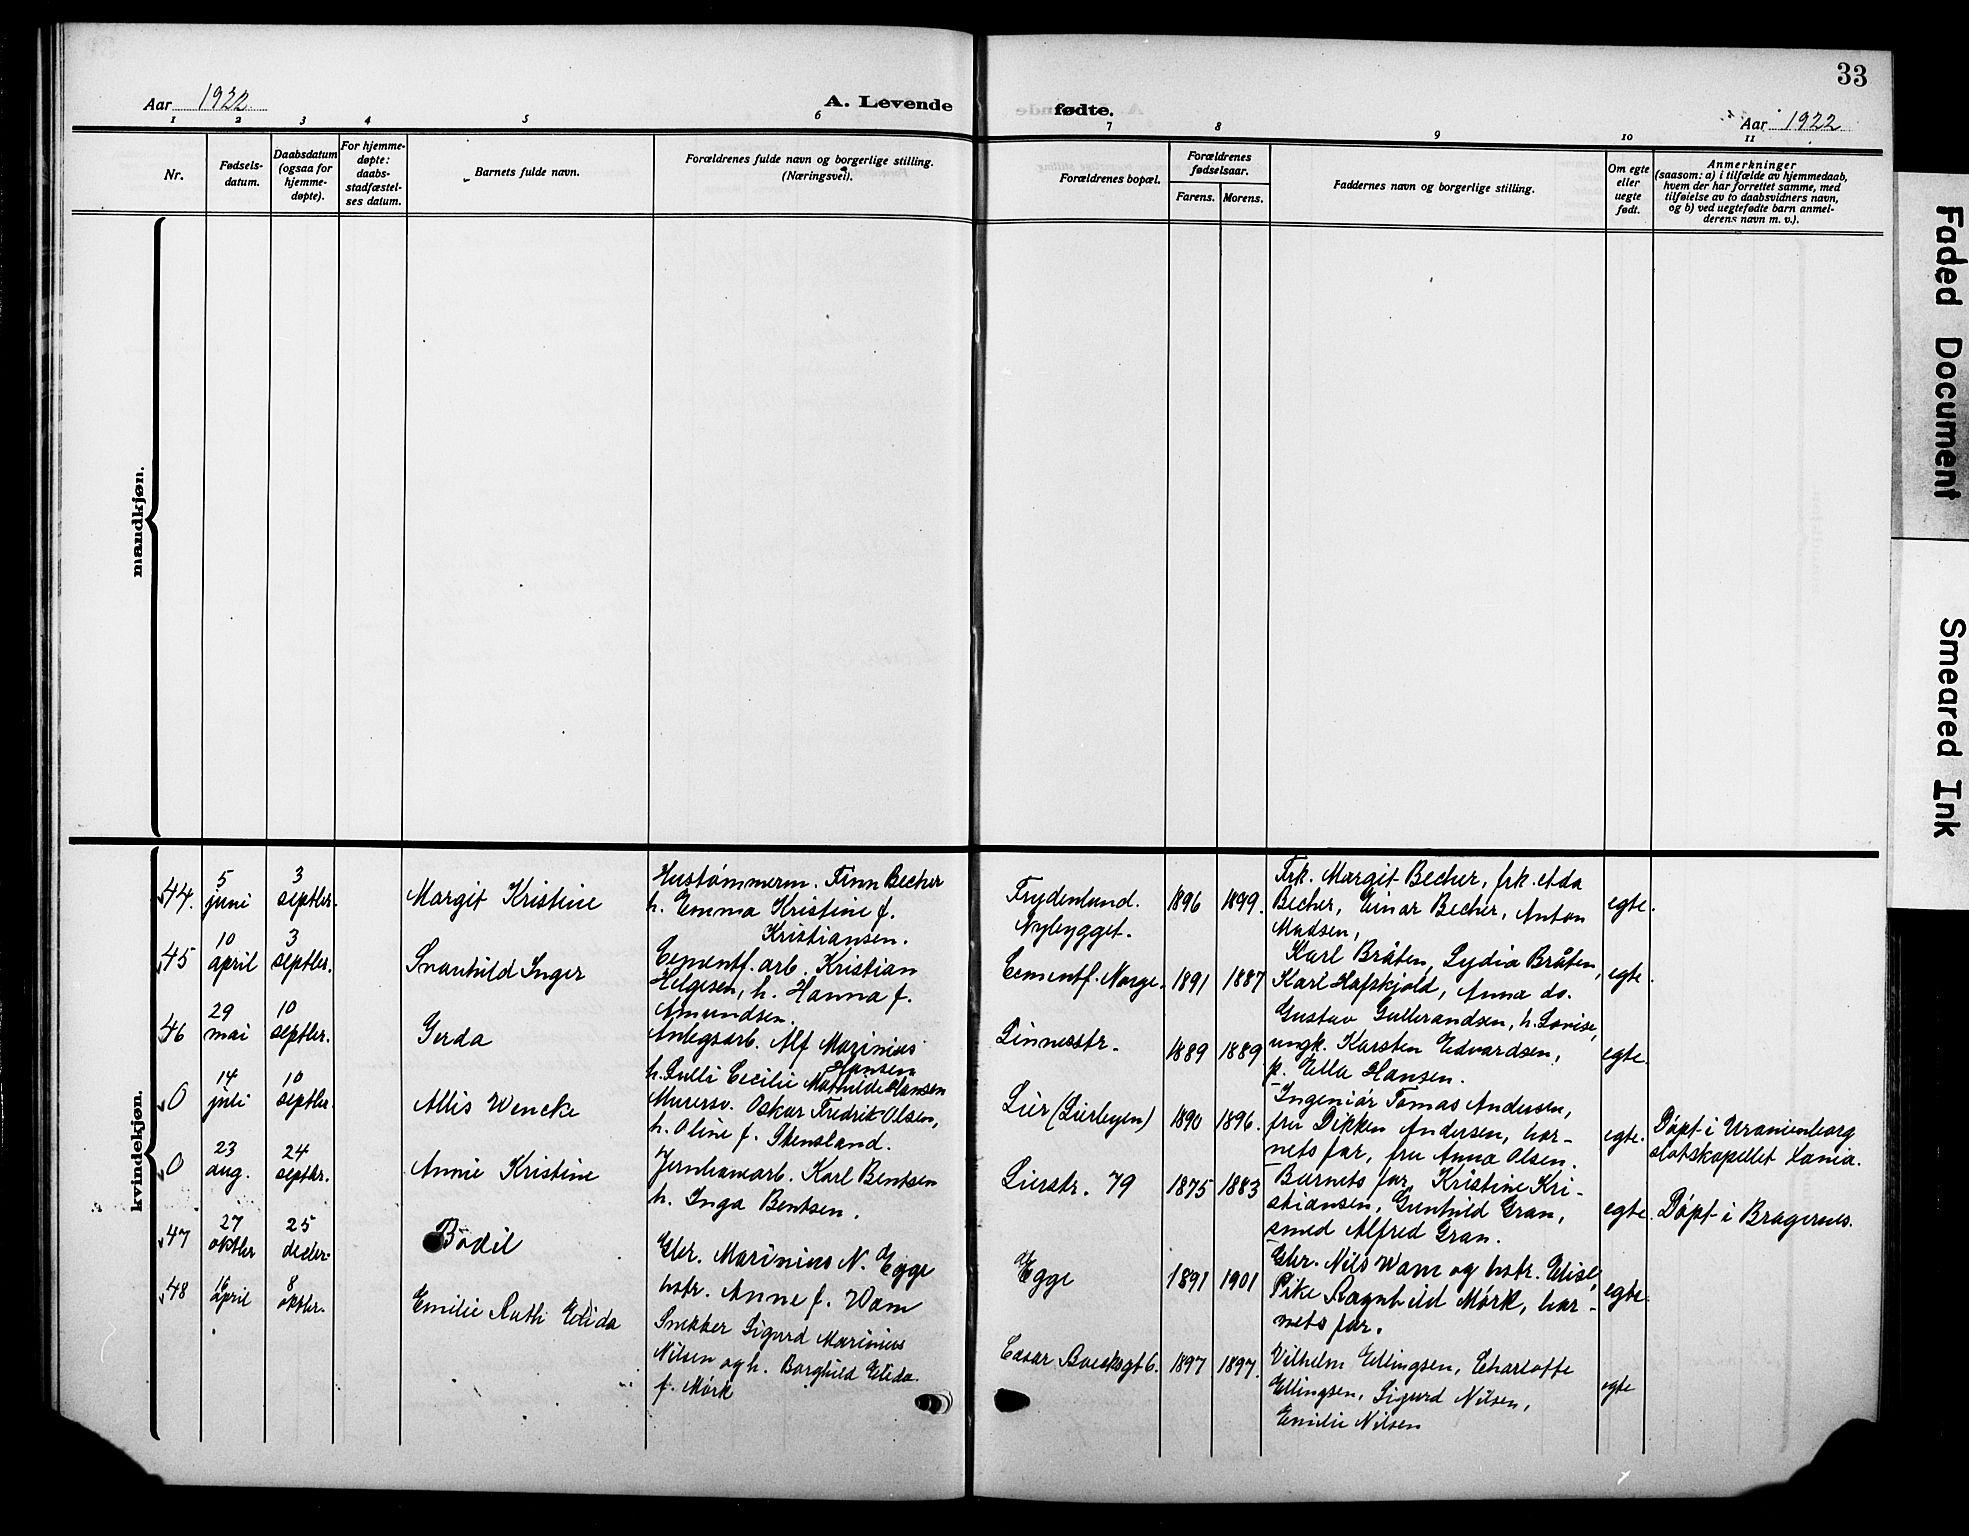 33
Aar 1922
A. Levende fødte.
Aar 1922
1 2 3 4 5 6 7 8 9 10 11
Nr.
Fødsels-
datum.
Daabsdatum
(ogsaa for
hjemme-
døpte).
For hjemme-
døpte:
daabs-
stadfæstel-
ses datum.
Barnets fulde navn.
Forældrenes fulde navn og borgerlige stilling.
(Næringsvei).
Forældrenes bopæl.
Forældrenes
fødselsaar.
Farens. Morens.
Faddernes navn og borgerlige stilling.
Om egte
eller
uegte
født.
Anmerkninger
(saasom: a) i tilfælde av hjemmedaab,
hvem der har forrettet samme, med
tilføielse av to daabsvidners navn,
og b) ved uegtefødte barn anmel-
derens navn m. v.).
mandkjøn.
kvindekjøn.
44.
5
juni
3
septbr.
Margit Kristine
Hustømmerm. Finn Becher
h. Emma Kristine f.
Kristiansen.
Frydenlund.
Nybygget.
1896
1899.
Frk. Margit Becher, frk. Ada
Becher, Einar Becher, Anton
Madsen,
egte.
45
10
april
3
septbr.
Snauhild Inger
Cementf. arb. Kristian
Helgesen, h. Hanna f.
Amundsen.
Cementf. Norge.
1891
1887
Karl Bråten, Lydia Bråten,
Karl Hafskjold, Anna do.
egte.
46
29
mai
10
septbr.
Gerda
Anlegsarb. Alf Marinius
Hansen
h. Lulli Cecilie Mathilde Hansen
Linnesstr.
1889
1889
Gustav Gulbrandsen, h. Lovise,
ungk. Karsten Edvardsen,
p. Ella Hansen.
egte.
0
14
juli
10
septbr.
Allis Wencke
Murersv. Oskar Fredrik Olsen,
h. Oline f. Stensland.
Lier (Lierbyen)
1890
1896.
Ingeniør Tomas Andersen,
fru Dikken Andersen, bar-
nets far, fru Anna Olsen.
egte.
Døpt i Uranienborg
slotskapellet Xania.
0
23
aug.
24
septbr.
Annie Kristine
Jernbanearb. Karl Bentsen
h. Inga Bentsen.
Lierstr. 79
1875
1883
Barnets far, Kristine Kri-
stiansen, Gunhild Gran,
smed Alfred Gran.
egte.
Døpt i Bragernes.
47
27
oktbr
25
decbr.
Bodil
Gbr. Marinius N. Egge
hstr. Anne f. Wam
Egge
1891
1901
Gbr. Nils Wam og hstr. Elise,
Pike Ragnhild Mørk, bar-
nets far.
egte.
48
16
april
8
oktbr.
Emilie Ruth Elida
Snekker Sigurd Marinius
Nilsen og h. Borghild Elida
f. Mørk
1897
1897.
Vilhelm Ellingsen, Charlotte
Ellingsen, Sigurd Nilsen,
Emilie Nilsen
egte
Faded Document
Smeared Ink